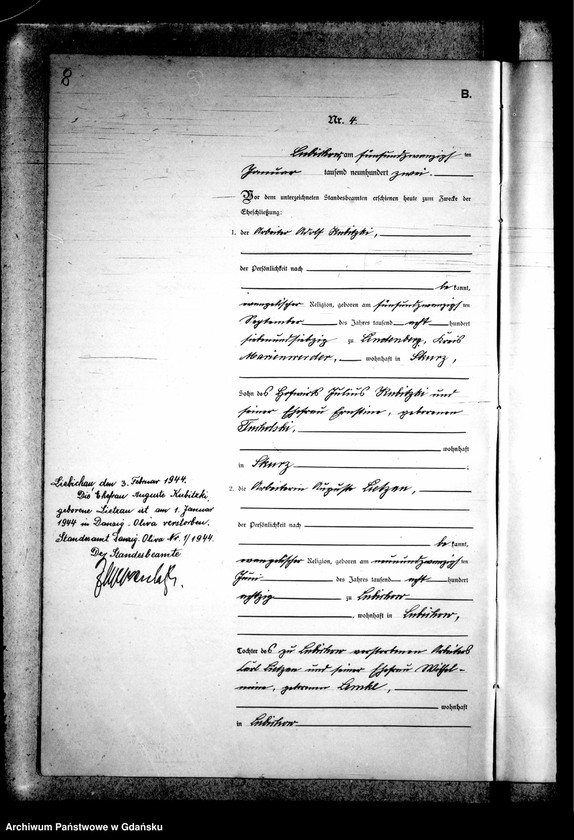 8
B.
Nr. 4.
Lubichow, am fünfundzwanzigsten
Januar tausend neunhundert zwei.
Vor dem unterzeichneten Standesbeamten erschienen heute zum Zwecke der
Eheschließung:
1. der Arbeiter Adolf Kubitzki,
der Persönlichkeit nach
be kannt,
evangelischer Religion, geboren am fünfundzwanzigsten
September des Jahres tausend acht hundert
siebenundsiebzig zu Lindenberg, Kreis
Marienwerder, wohnhaft in Skurz,
Sohn des Hofwirts Julius Kubitzki und
seiner Ehefrau Ernstine, geborenen
wohnhaft
in Skurz ;
2. die Arbeiterin Auguste Lietzau,
der Persönlichkeit nach
be kannt,
evangelischer Religion, geboren am neunundzwanzigsten
Juni des Jahres tausend acht hundert
achtzig zu Lubichow
, wohnhaft in Lubichow,
Tochter des zu Lubichow verstorbenen Arbeiters
Carl Lietzau und seiner Ehefrau Wilhel-
mine, geborenen
wohnhaft
in Lubichow
Liebichau, den 3. Februar 1944.
Die Ehefrau Auguste Kubitzki,
geborene Lietzau ist am 1. Januar
1944 in Danzig-Oliva verstorben.
Standesamt Danzig-Oliva Nr. 1/1944.
Der Standesbeamte
Archiwum Państwowe w Gdańsku